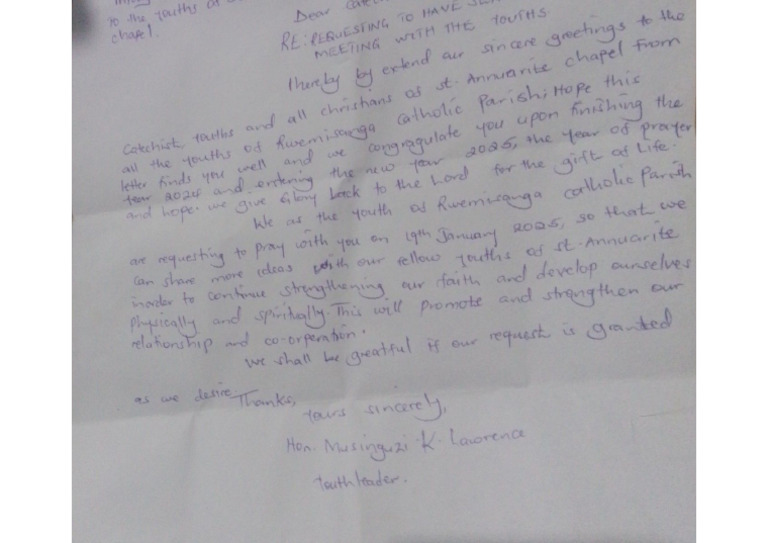 to the youths of
chapel.
Dear Catec
RE: REQUESTING TO HAVE
MEETING WITH THE YOUTHS
I hereby by extend our sincere greetings to the
Catechist, youths and all christians of st. Annuarite chapel from
all the youths of Rwemisanga Catholic Parish. Hope this
letter finds you well and we congragulate you upon finishing the
year 2024 and entering the new year 2025, the year of prayer
and hope. we give Glory back to the Lord for the gift of Life.
We as the youth of Rwemisanga catholic Parish
are requesting to pray with you on 19th January 2025, so that we
can share more ideas with our fellow youths of st. Annuarite
inorder to continue strengthening our faith and develop ourselves
physically and spiritually. This will promote and strengthen our
relationship and co-orperation.
We shall be greatful if our request is granted
as we desire.
Thanks,
Yours sincerely,
Hon. Musinguzi K. Lawrence
Youth leader.